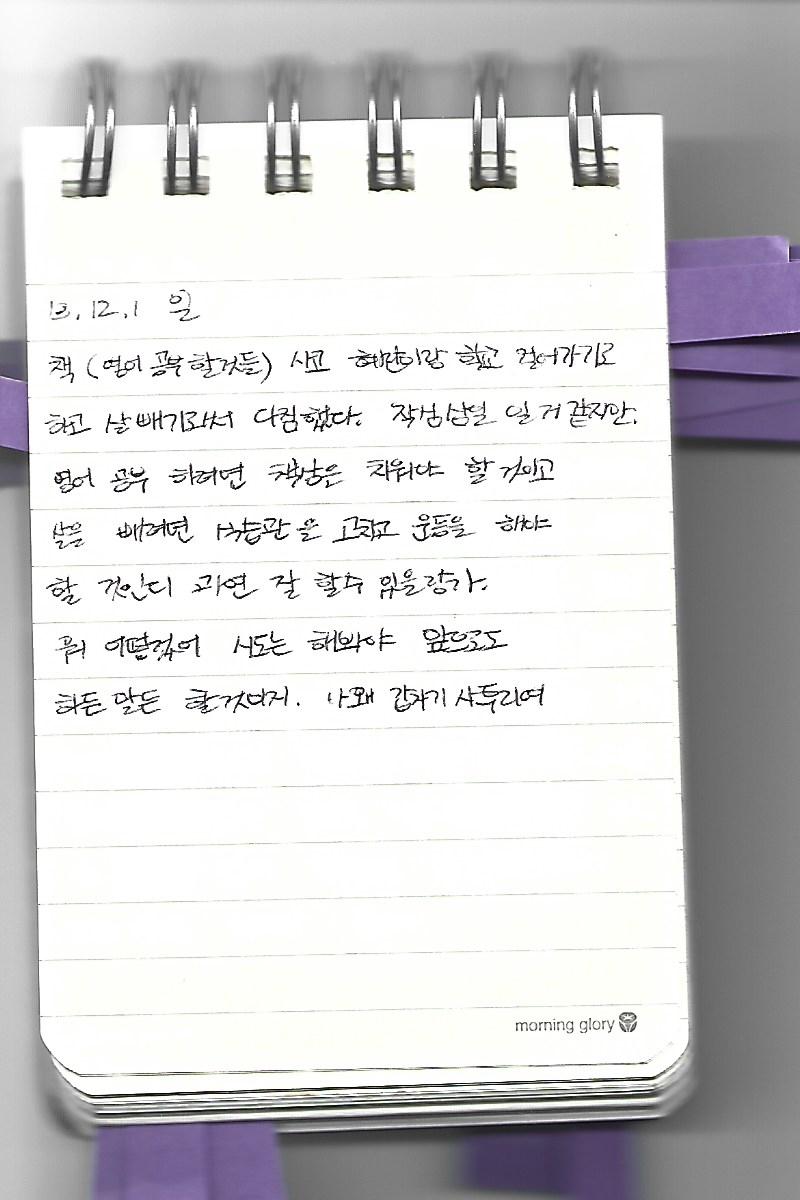 13.12.1 일
책 (영어 공부 할것들) 사고 혜란이랑 학교 걸어가기로
하고 살빼기로서 다짐했다. 작심삼일 일 거 같지만.
영어 공부 하려면 책상은 치워야 할 것이고
살을 빼려면 식습관을 고치고 운동을 해야
할 것인디 과연 잘 할수 있을랑가.
뭐 어떻겠어 시도는 해봐야 앞으로도
하든 말든 할것이지. 나 왜 갑자기 사투리여
morning glory